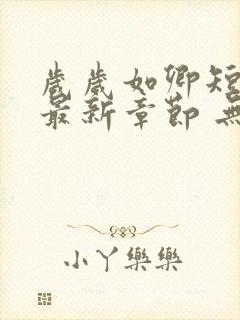 歲歲如卿短
最新章節 無
小丫樂樂